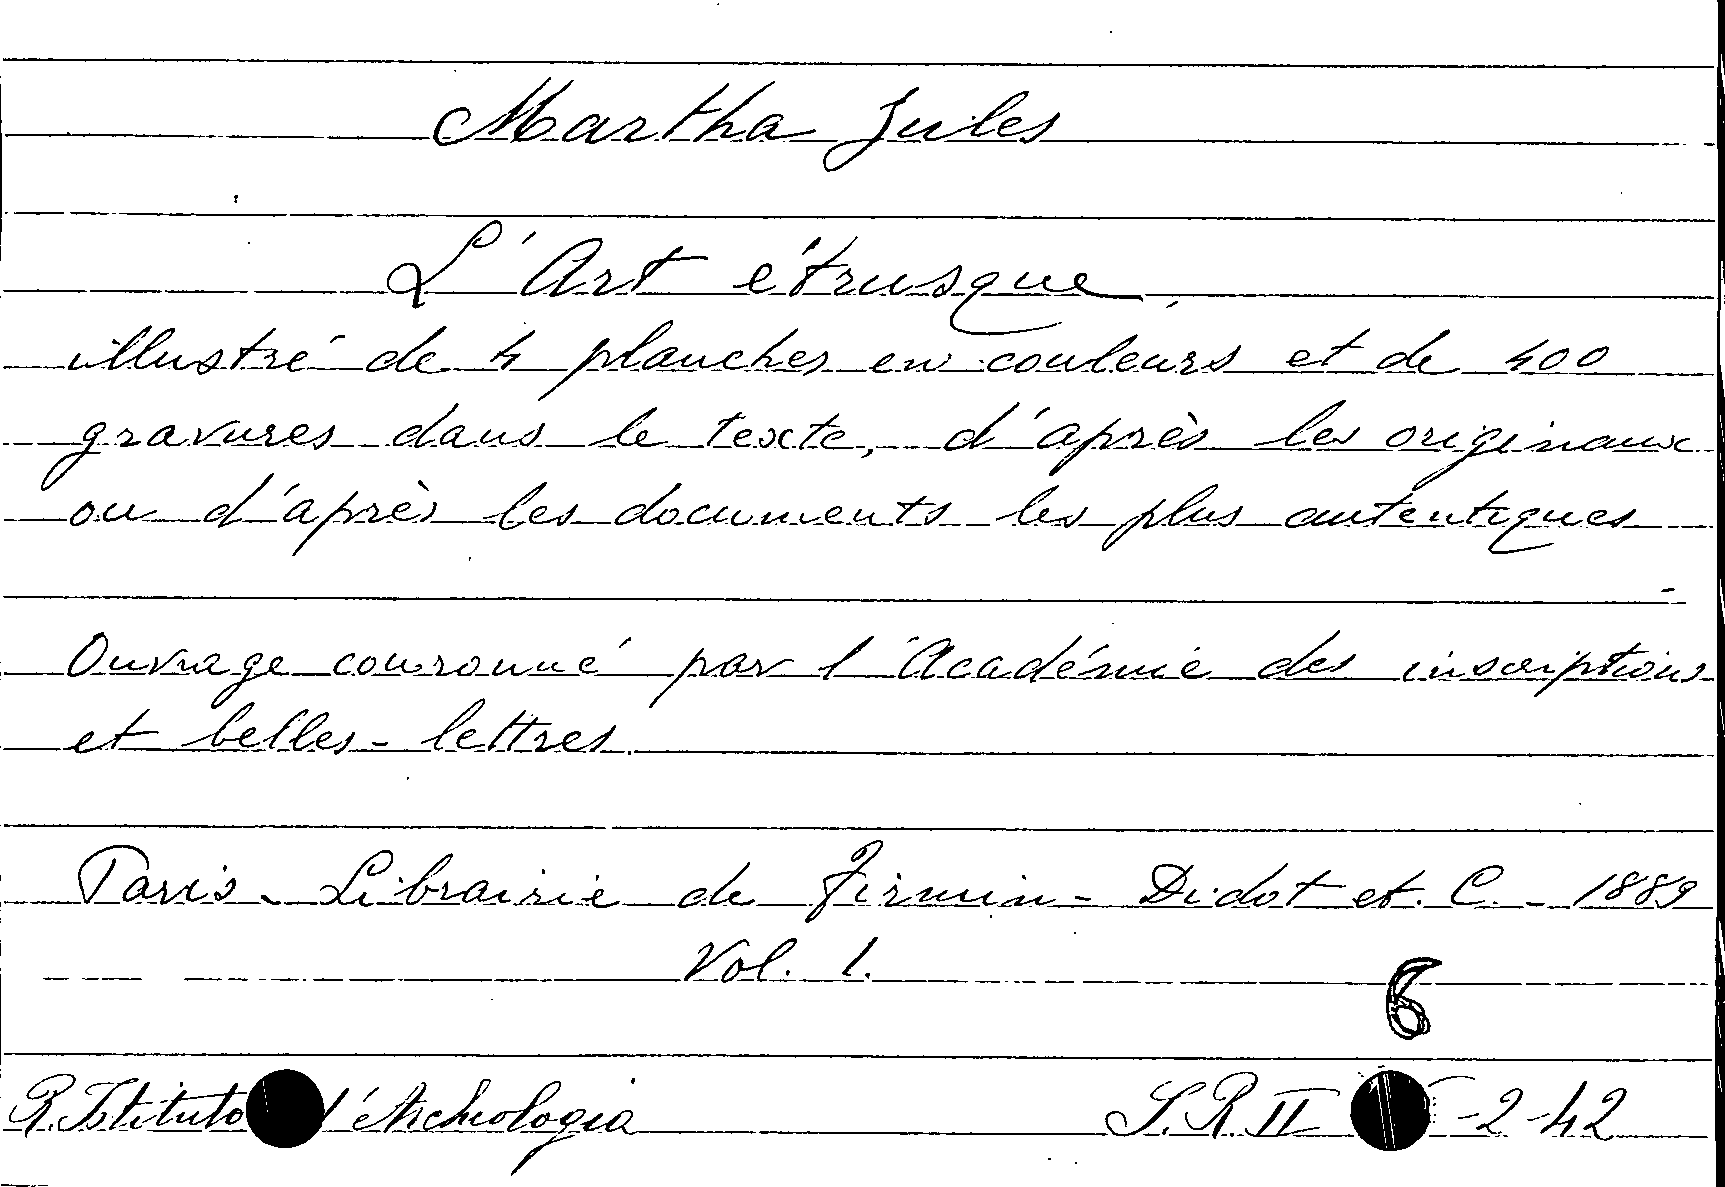 Martha Jules
L'Art étrusque
illustré de 4 planches en couleurs et de 400
gravures dans le texte, d'après les originaux
ou d'après les documents les plus autentiques
Ouvrage couronné par l'Académie des inscriptions
et belles-lettres
Paris - Librairie de Firmin-Didot et. C. - 1889
Vol. 1.
6
R. Istituto d'Archeologia S.R. II -2-42